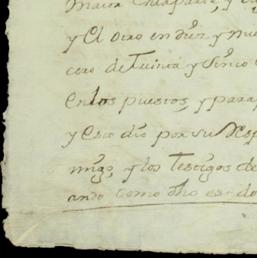 y El otro en diez y nu
cero de treinta y sinco
en los puestos, y para
y esto dio por su Resp
migo, y los testigos de
ando como dho es do